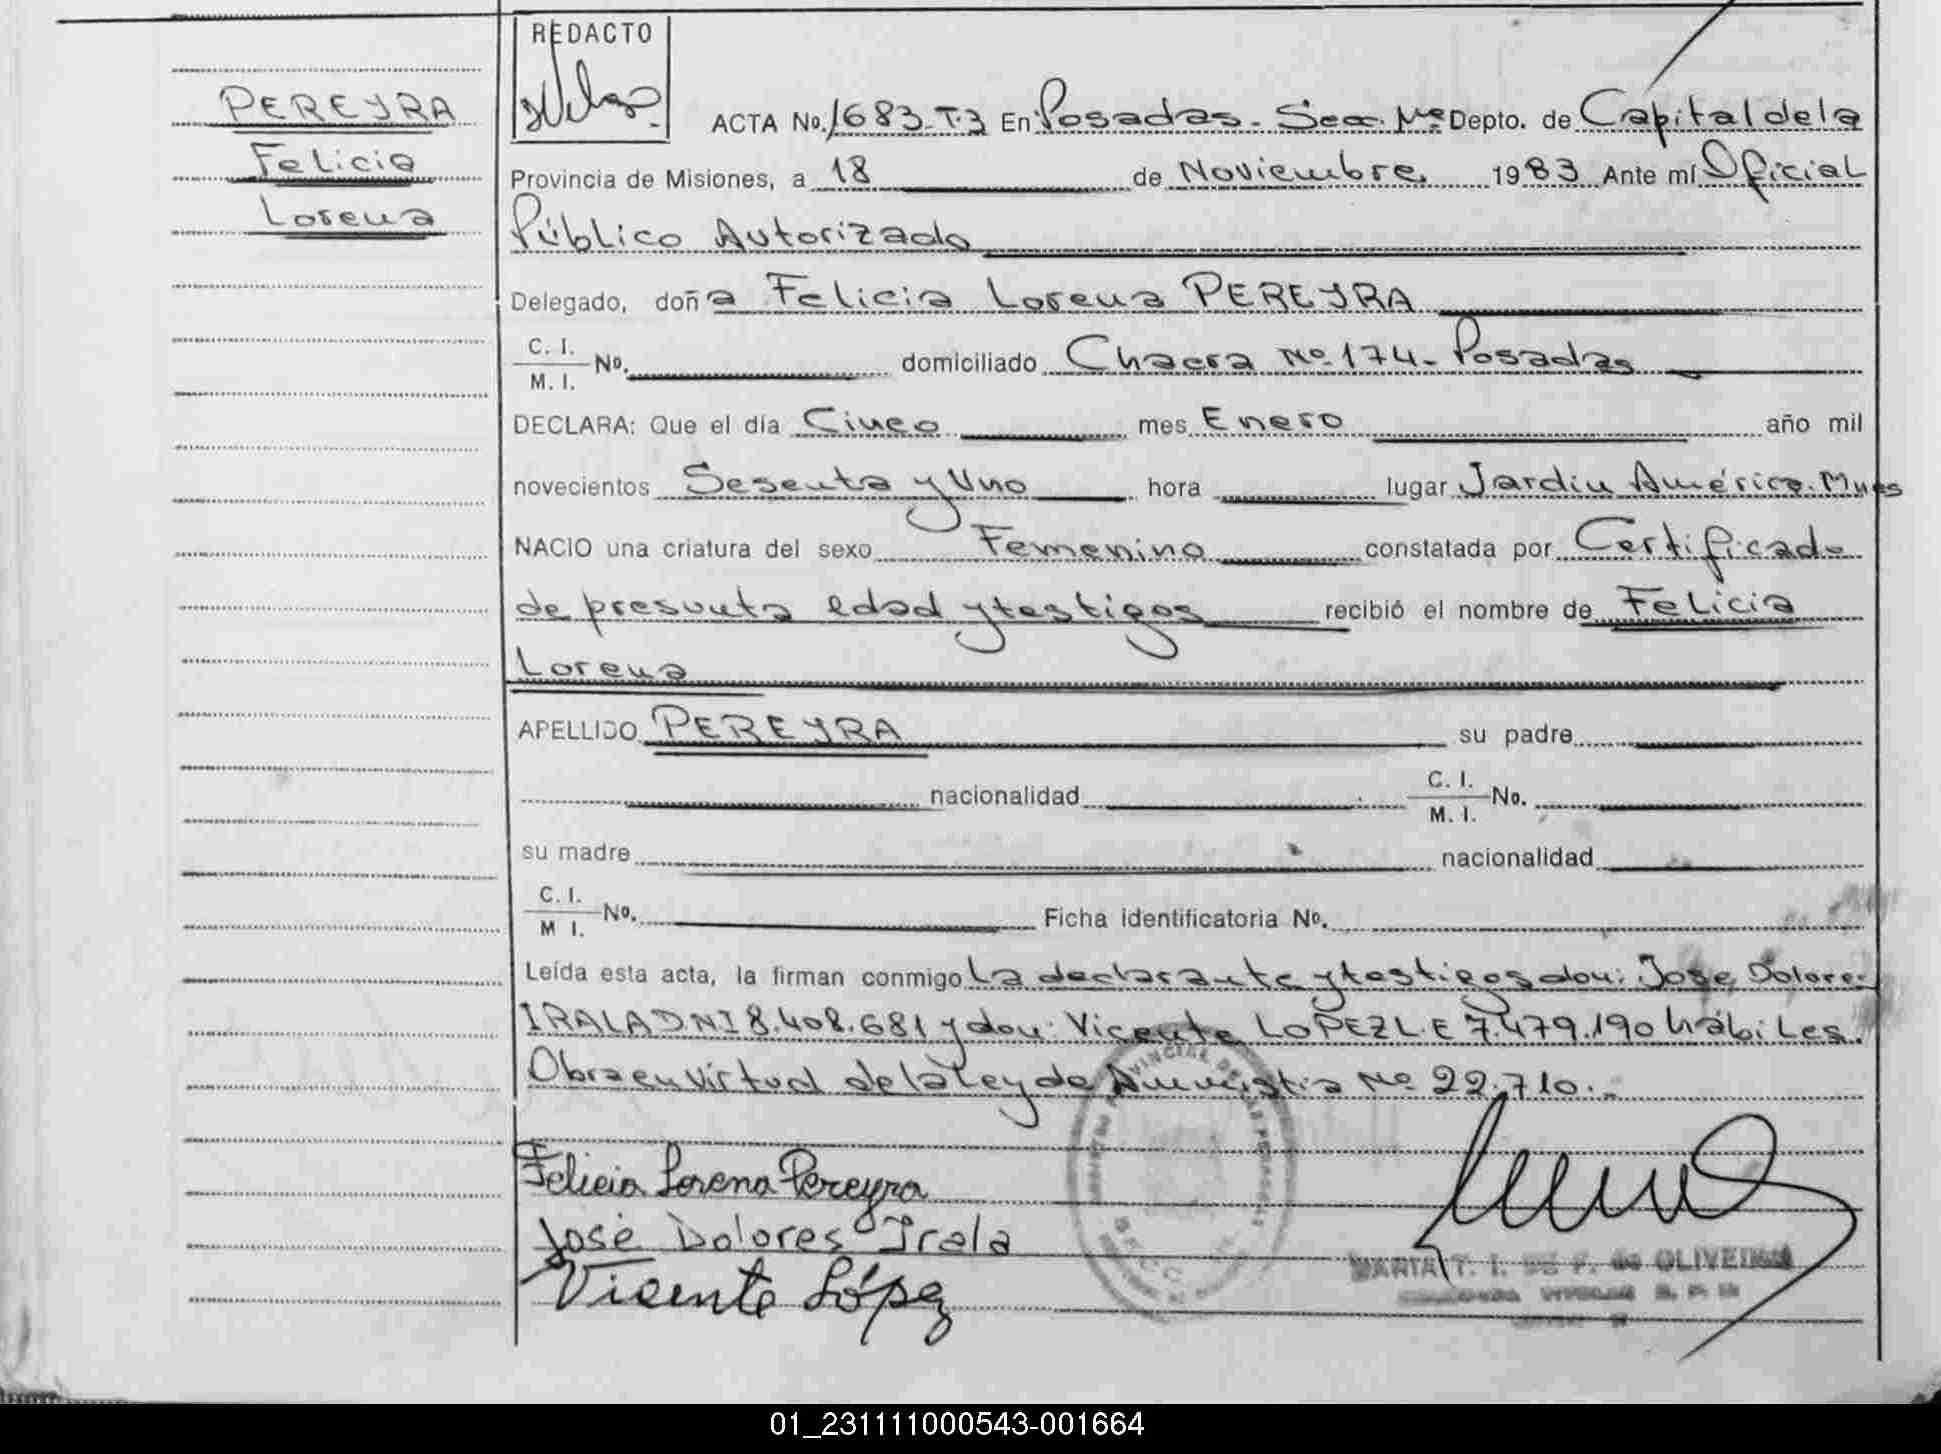 REDACTO
PEREYRA
Felicia
Lorena
ACTA No. 1683-T.3 En Posadas - Secc. 1ra Depto. de Capital de la
Provincia de Misiones, a 18 de Noviembre 1983 Ante mí Oficial
Público Autorizado
Delegado, doña Felicia Lorena PEREYRA
C. I.
M. I. No. domiciliado Chacra Nº 174 - Posadas
DECLARA: Que el día Cinco mes Enero año mil
novecientos Sesenta y Uno hora lugar Jardín América. Mnes
NACIO una criatura del sexo Femenino constatada por Certificado
de presunta edad y testigos recibió el nombre de Felicia
Lorena
APELLIDO PEREYRA su padre
nacionalidad C. I.
M. I. No.
su madre nacionalidad
C. I.
M I. No. Ficha identificatoria No.
Leída esta acta, la firman conmigo La declarante y testigos don: José Dolores
IRALA DNI 8.408.681 y don: Vicente LOPEZ L.E 7.479.190 hábiles.
Obra en virtud de la Ley de Amnistia Nº 22.710.-
Felicia Lorena Pereyra
José Dolores Irala
Vicente López
MARIA T. I. DE F. de OLIVEIRA
01_231111000543-001664